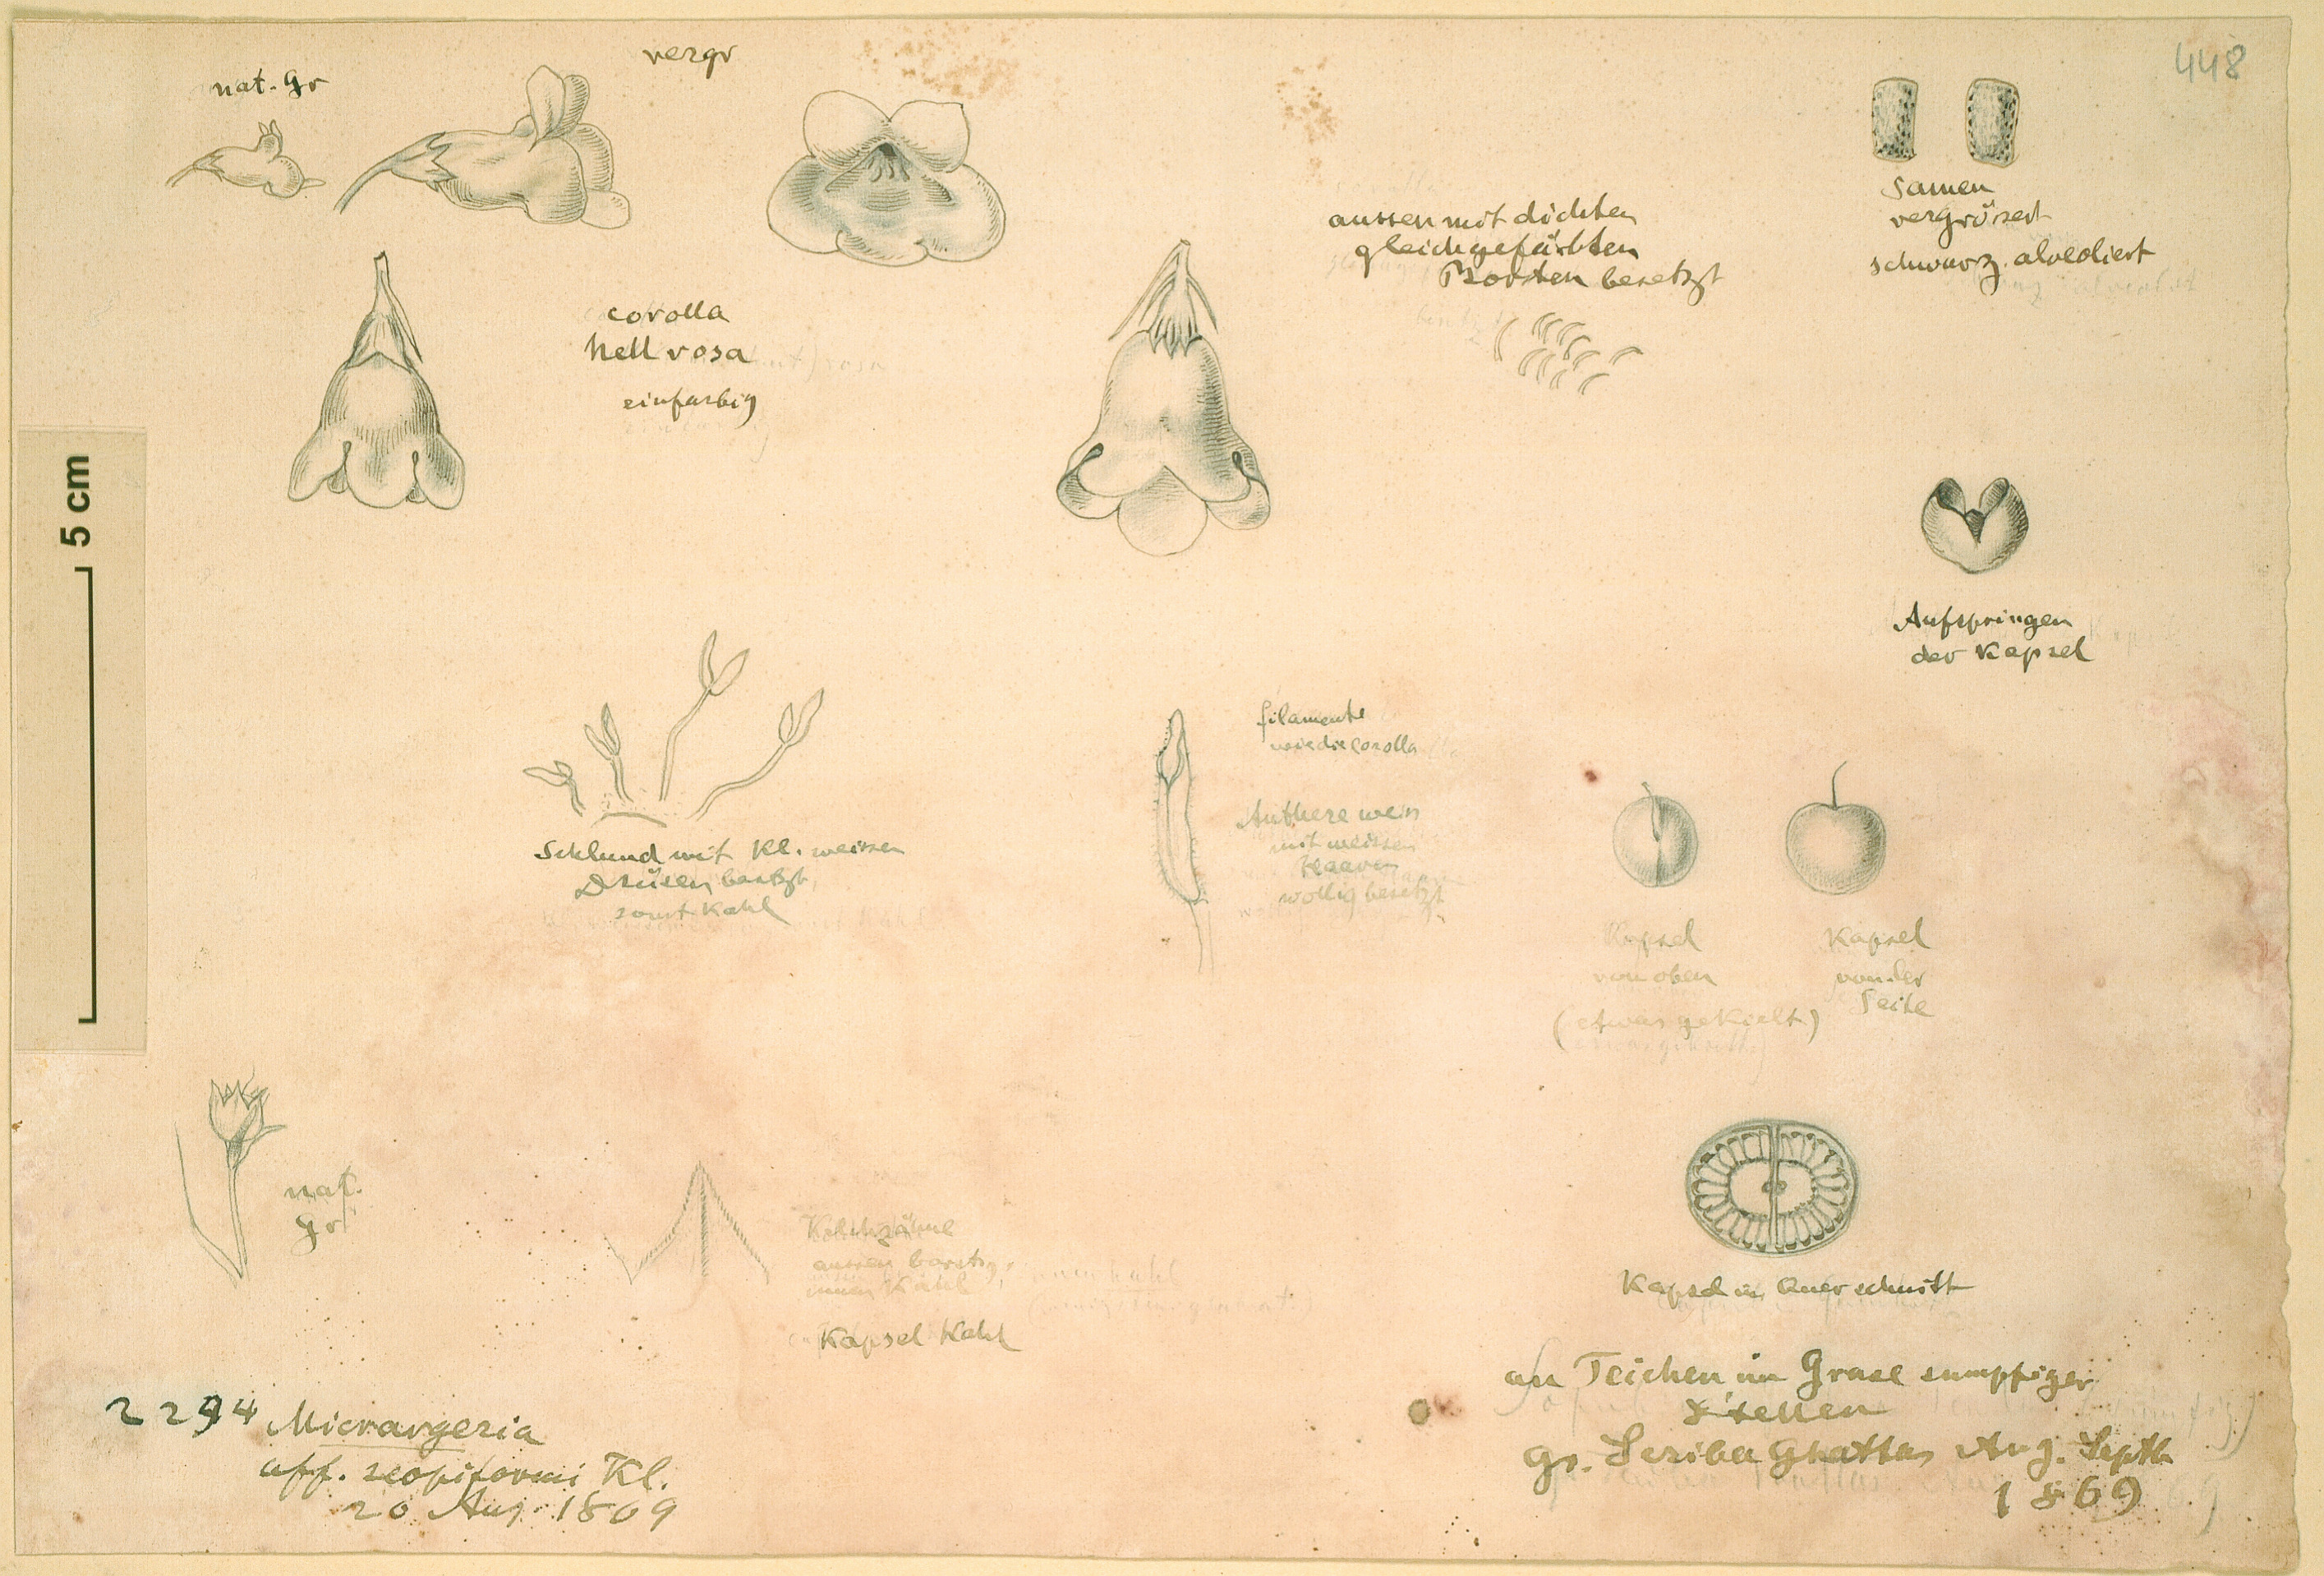 448
nat. Gr
vergr
Samen
vergrösert
schwarz. alveoliert
aussen mit dichten
gleichgefärbten
Borsten besetzt
corolla
hell rosa
einfarbig
5 cm
Aufspringen
der Kapsel
filamente
wie die Corolla
Anthere weis
mit weissen
Haaren
wollig besetzt
Schlund mit Kl. weissen
Drüsen besetzt,
sonst Kahl
Kapsel
von oben
(etwas gekielt)
Kapsel
von der
Seite
nat.
Gr
Kelchzähne
aussen borstig,
innen Kahl
Kapsel Kahl
Kapsel in Querschnitt
an Teichen im Grase sumpfiger
Stellen
gr. Seriba Ghattas Aug. Septb
1869
2294 Micrargeria
aff. scopiformi Kl.
20 Aug. 1869